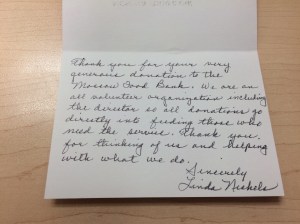 Thank you for your very
generous donation to the
Moscow Food Bank. We are an
all volunteer organization including
the director so all donations go
directly into feeding those who
need the service. Thank you
for thinking of us and helping
with what we do.
Sincerely
Linda Nickels